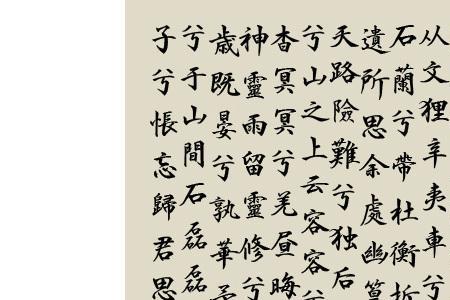 从文狸辛夷車兮
石蘭兮帶杜衡折
遺所思余處幽篁
天路險難兮独后
兮山之上云容容
杳冥冥兮羌昼晦
神靈雨留靈修兮
歳既晏兮孰華
兮于山間石磊磊
子兮悵忘歸君思